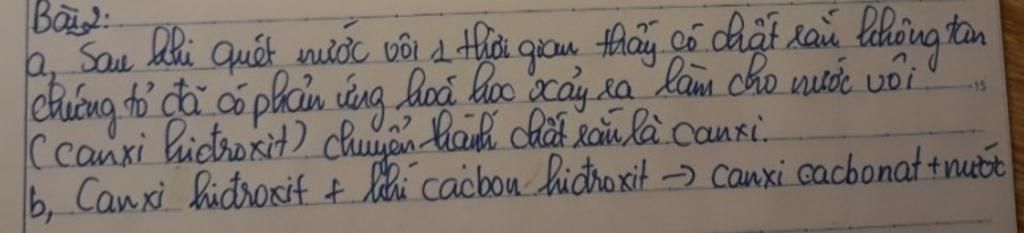 Bài 2:
a, Sau khi quét nước vôi 1 thời gian thấy có chất rắn không tan
chứng tỏ đã có phản ứng hoá học xảy ra làm cho nước vôi
(canxi hiđroxit) chuyển thành chất rắn là canxi.
b, Canxi hiđroxit + khí cácbon hiđroxit → canxi cacbonat + nước